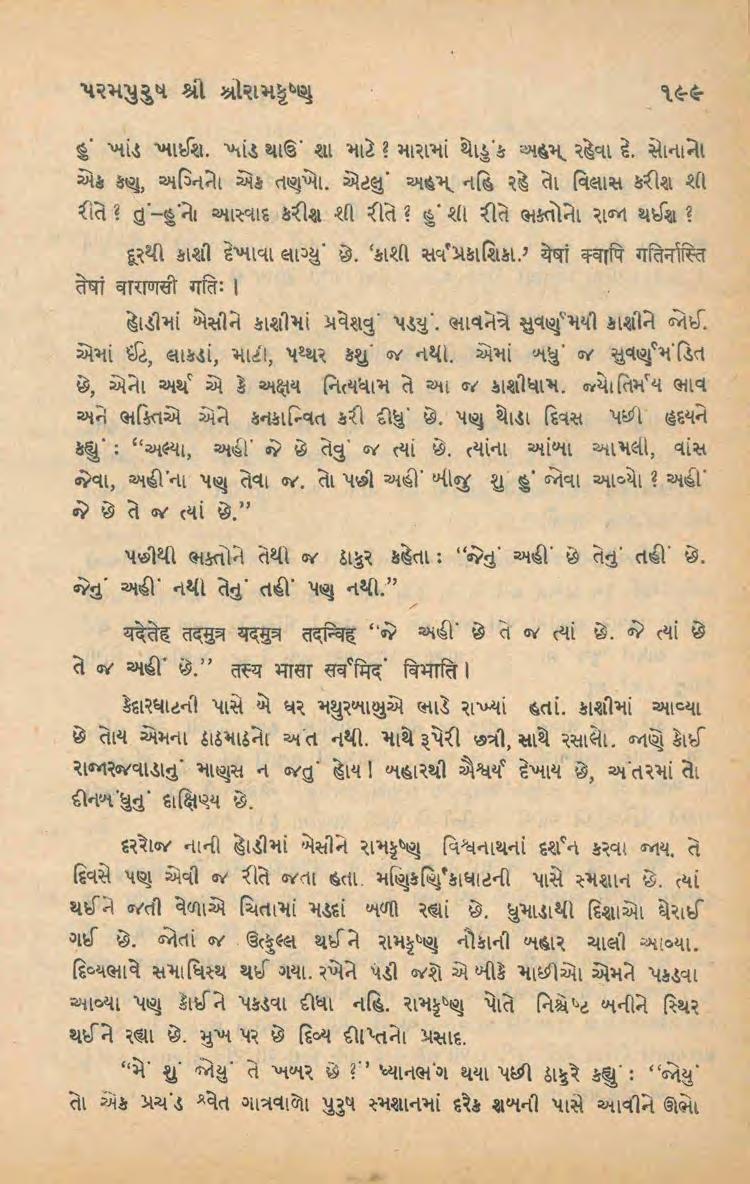 પરમપુરુષ શ્રી શ્રીરામકૃષ્ણ ૧૯૯
હું ખાંડ ખાઈશ. ખાંડ થાઉં શા માટે ? મારામાં થોડુંક અહમ્ રહેવા દે. સોનાનો
એક કણ, અગ્નિનો એક તણખો. એટલું અહમ્ નહિ રહે તો વિલાસ કરીશ શી
રીતે ? તું–હુંનો આસ્વાદ કરીશ શી રીતે ? હું શી રીતે ભક્તોનો રાજા થઈશ ?
દૂરથી કાશી દેખાવા લાગ્યું છે. ‘કાશી સર્વપ્રકાશિકા.’ येषां क्वापि गतिर्नास्ति
तेषां वाराणसी गतिः ।
હોડીમાં બેસીને કાશીમાં પ્રવેશવું પડયું. ભાવનેત્રે સુવર્ણમયી કાશીને જોઈ.
એમાં ઈંટ, લાકડાં, માટી, પથ્થર કશું જ નથી. એમાં બધું જ સુવર્ણમંડિત
છે, એનો અર્થ એ કે અક્ષય નિત્યધામ તે આ જ કાશીધામ. જ્યોતિર્મય ભાવ
અને ભક્તિએ એને કનકાન્વિત કરી દીધું છે. પણ થોડા દિવસ પછી હૃદયને
કહ્યું : “અલ્યા, અહીં જે છે તેવું જ ત્યાં છે. ત્યાંના આંબા આમલી, વાંસ
જેવા, અહીંના પણ તેવા જ. તો પછી અહીં બીજુ શુ હું જોવા આવ્યો ? અહીં
જે છે તે જ ત્યાં છે.”
પછીથી ભક્તોને તેથી જ ઠાકુર કહેતા : “જેનું અહીં છે તેનું તહીં છે.
જેનું અહીં નથી તેનું તહીં પણ નથી.”
यदेतेह तदमुत्र यदमुत्र तदन्विह “જે અહીં છે તે જ ત્યાં છે. જે ત્યાં છે
તે જ અહીં છે.” तस्य भासा सर्वमिदं विभाति ।
કેદારઘાટની પાસે બે ઘર મથુરબાબુએ ભાડે રાખ્યાં હતાં. કાશીમાં આવ્યા
છે તોય એમના ઠાઠમાઠનો અંત નથી. માથે રૂપેરી છત્રી, સાથે રસાલો. જાણે કોઈ
રાજારજવાડાનું માણસ ન જતું હોય ! બહારથી ઐશ્વર્ય દેખાય છે, અંતરમાં તો
દીનબંધુનું દાક્ષિણ્ય છે.
દરરોજ નાની હોડીમાં બેસીને રામકૃષ્ણ વિશ્વનાથનાં દર્શન કરવા જાય. તે
દિવસે પણ એવી જ રીતે જતા હતા. મણિકર્ણિકાઘાટની પાસે સ્મશાન છે. ત્યાં
થઈને જતી વેળાએ ચિતામાં મડદાં બળી રહ્યાં છે. ધુમાડાથી દિશાઓ ઘેરાઈ
ગઈ છે. જોતાં જ ઉત્ફુલ્લ થઈને રામકૃષ્ણ નૌકાની બહાર ચાલી આવ્યા.
દિવ્યભાવે સમાધિસ્થ થઈ ગયા. રખેને પડી જશે એ બીકે માછીઓ એમને પકડવા
આવ્યા પણ કોઈને પકડવા દીધા નહિ. રામકૃષ્ણ પોતે નિશ્ચેષ્ટ બનીને સ્થિર
થઈને રહ્યા છે. મુખ પર છે દિવ્ય દીપ્તિનો પ્રસાદ.
“મેં શું જોયું તે ખબર છે ?” ધ્યાનભંગ થયા પછી ઠાકુરે કહ્યું : “જોયું
તો એક પ્રચંડ શ્વેત ગાત્રવાળો પુરુષ સ્મશાનમાં દરેક શબની પાસે આવીને ઊભો